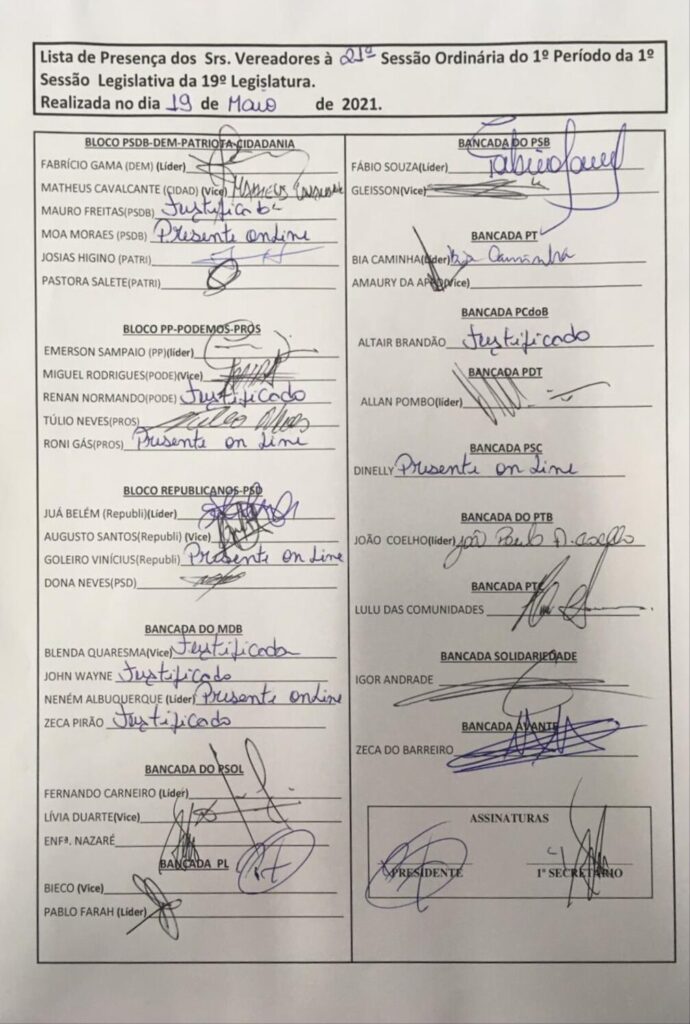 Lista de Presença dos Srs. Vereadores à 21ª Sessão Ordinária do 1º Período da 1º
Sessão Legislativa da 19º Legislatura.
Realizada no dia 19 de Maio de 2021.
BLOCO PSDB-DEM-PATRIOTA-CIDADANIA
FABRÍCIO GAMA (DEM) (Líder)
MATHEUS CAVALCANTE (CIDAD) (Vice) MATHEUS CAVALCANTE
MAURO FREITAS(PSDB) Justificado
MOA MORAES (PSDB) Presente online
JOSIAS HIGINO (PATRI)
PASTORA SALETE(PATRI)
BLOCO PP-PODEMOS-PROS
EMERSON SAMPAIO (PP)(líder)
MIGUEL RODRIGUES(PODE)(Vice)
RENAN NORMANDO(PODE) Justificado
TÚLIO NEVES(PROS) Túlio Neves
RONI GÁS(PROS) Presente on Line
BLOCO REPUBLICANOS-PSD
JUÁ BELÉM (Republi)(Líder)
AUGUSTO SANTOS(Republi) (Vice)
GOLEIRO VINÍCIUS(Republi) Presente on Line
DONA NEVES(PSD)
BANCADA DO MDB
BLENDA QUARESMA(Vice) Justificada
JOHN WAYNE Justificado
NENÉM ALBUQUERQUE (Líder) Presente online
ZECA PIRÃO Justificado
BANCADA DO PSOL
FERNANDO CARNEIRO (Líder)
LÍVIA DUARTE(Vice)
ENFª. NAZARÉ
BANCADA PL
BIECO (Vice)
PABLO FARAH (Líder)
BANCADA DO PSB
FÁBIO SOUZA(Líder)
GLEISSON(Vice)
BANCADA PT
BIA CAMINHA(Líder) Bia Caminha
AMAURY DA APPD(Vice)
BANCADA PCdoB
ALTAIR BRANDÃO Justificado
BANCADA PDT
ALLAN POMBO(líder)
BANCADA PSC
DINELLY Presente on Line
BANCADA DO PTB
JOÃO COELHO(líder) João Paulo A. Coelho
BANCADA PTC
LULU DAS COMUNIDADES
BANCADA SOLIDARIEDADE
IGOR ANDRADE
BANCADA AVANTE
ZECA DO BARREIRO
ASSINATURAS
PRESIDENTE 1º SECRETÁRIO